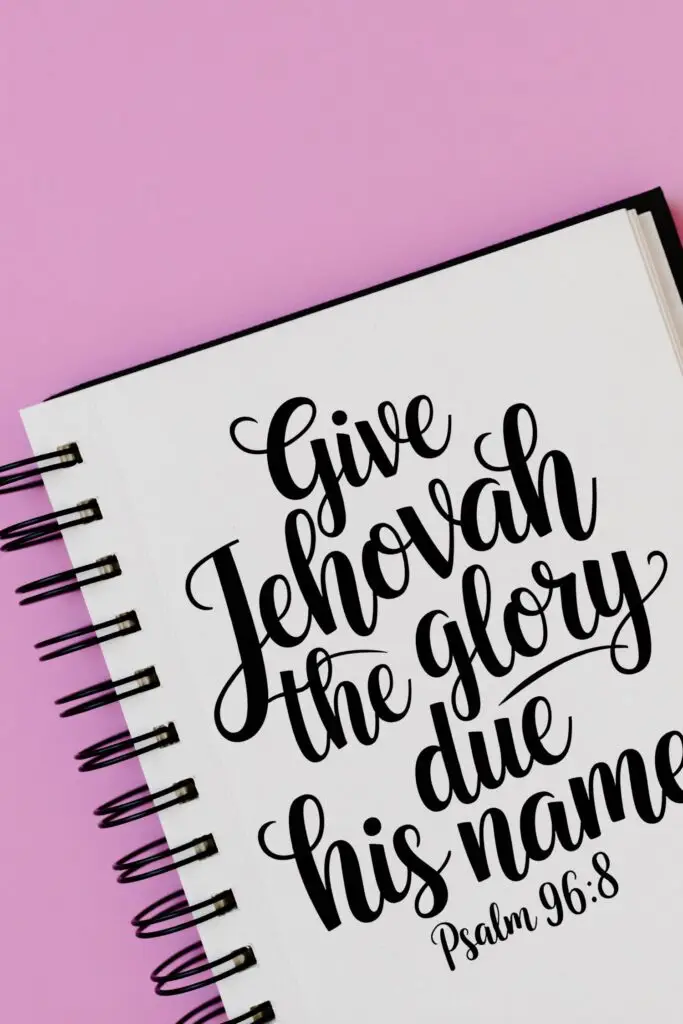 Give
Jehovah
the glory
due
his name
Psalm 96:8